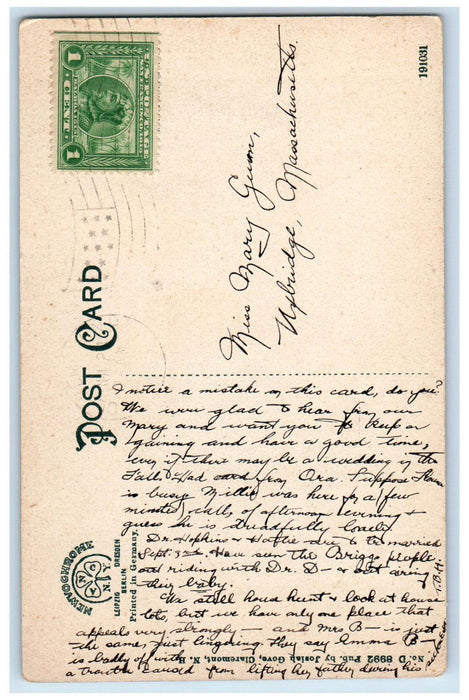 191031
1 CENT 1
POST CARD
Miss Mary Gunn,
Uxbridge, Massachusetts.
I notice a mistake on this card, do you?
We were glad to hear from our
Mary and want you to keep on
gaining and have a good time,
even if there may be a wedding in the
Fall. Had card from Ora. Suppose
is busy. Millie was here for a few
minutes call of afternoon evening &
guess she is dreadfully lonely.
Dr. Hopkins & Hattie are to be married
Sept. 3rd. Have seen the Briggs people
out riding with Dr. D— & out airing
their baby.
We still house hunt & look at house
lots, but we have only one place that
appeals very strongly — and Mrs B— is just
the same, just lingering. They say Emma B—
is badly off with
a caused from lifting her father during his
MEWOCHROME
N.Y.
LEIPZIG BERLIN DRESDEN
Printed in Germany.
No. D 8992 Pub. by Josiah Gove, Claremont, N. H.